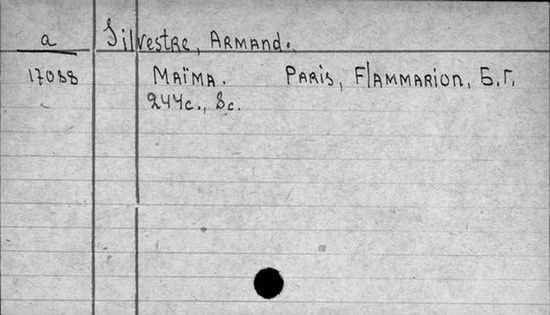 a Silvestre, Armand.
17088 Maïma. Paris, Flammarion, Б.Г.
244с., 8с.